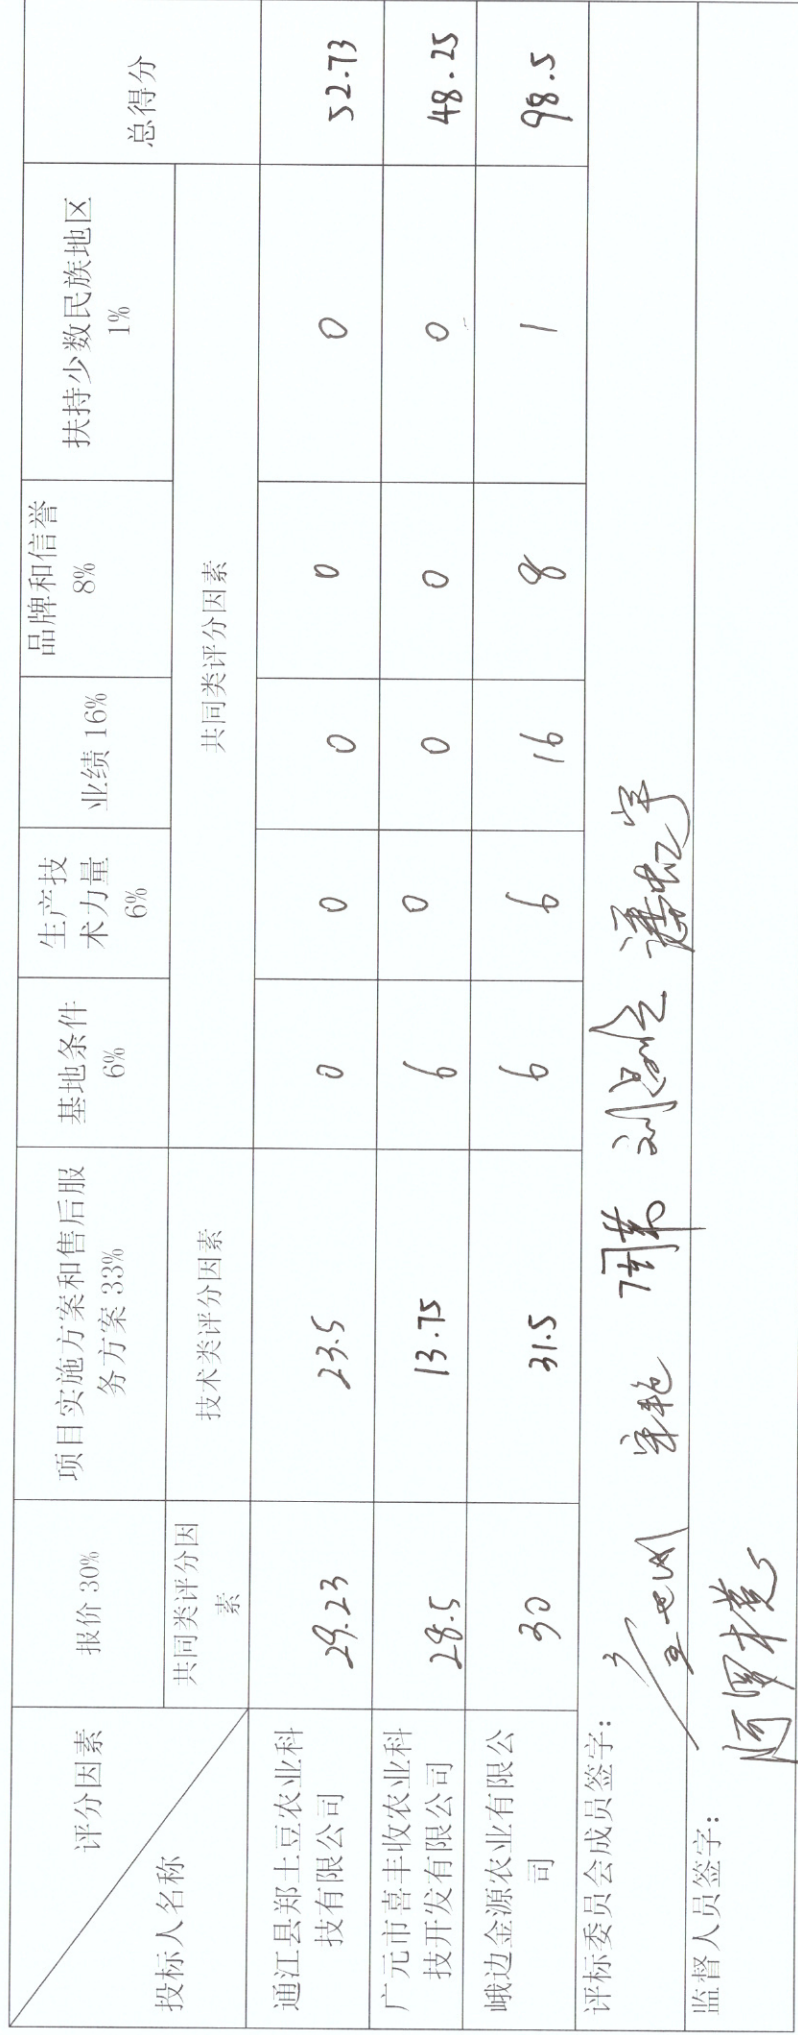 评分因素
投标人名称
报价 30%
项目实施方案和售后服
务方案 33%
基地条件
6%
生产技
术力量
6%
业绩 16%
品牌和信誉
8%
扶持少数民族地区
1%
总得分
共同类评分因
素
技术类评分因素
共同类评分因素
通江县郑土豆农业科
技有限公司
29.23
23.5
0
0
0
0
0
52.73
广元市喜丰收农业科
技开发有限公司
28.5
13.75
6
0
0
0
0
48.25
峨边金源农业有限公
司
30
31.5
6
6
16
8
1
98.5
评标委员会成员签字：
监督人员签字：